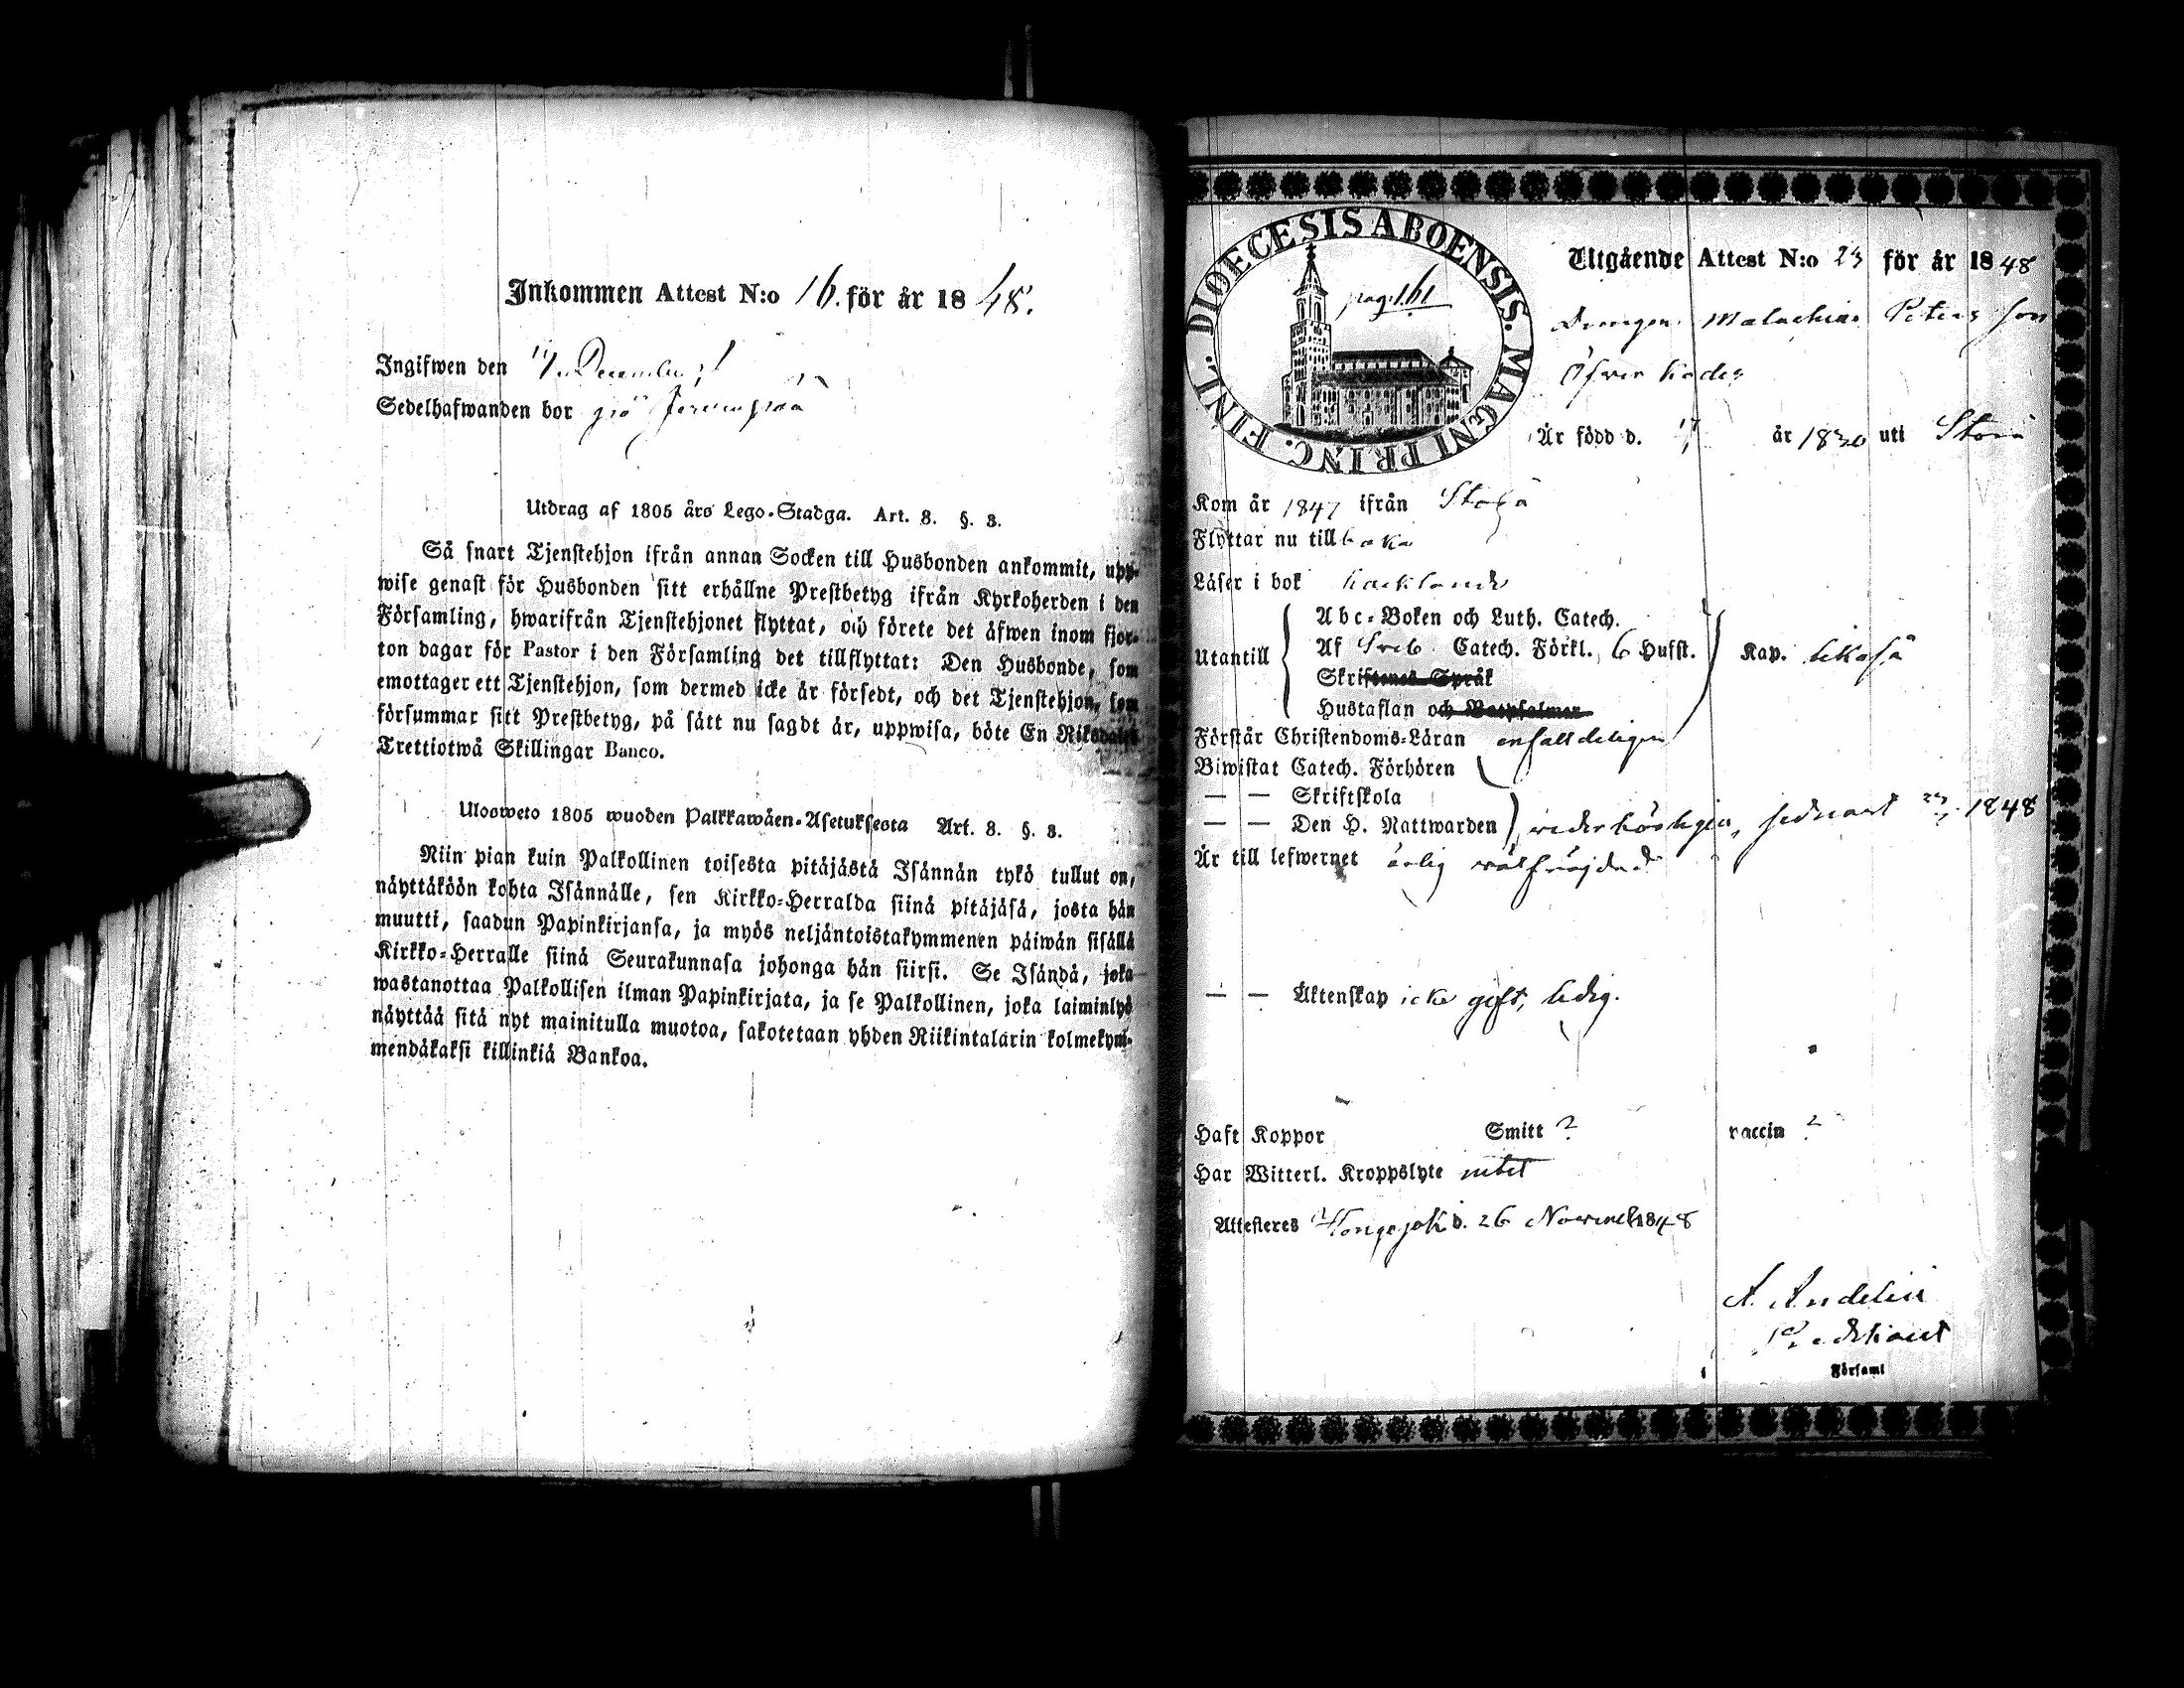 Inkommen Attest N:o 16. för år 1848.
Ingifwen den 17/12 December
Sedelhafwanden bor på
Utdrag af 1805 års Lego-Stadga. Art. 8. §. 3.
Så snart Tjenstehjon ifrån annan Socken till Husbonden ankommit, upp-
wise genast för Husbonden sitt erhållne Prestbetyg ifrån Kyrkoherden i den
Församling, hwarifrån Tjenstehjonet flyttat, och förete det äfwen inom fjor-
ton dagar för Pastor i den Församling det tillflyttat: Den Husbonde, som
emottager ett Tjenstehjon, som dermed icke är försedt, och det Tjenstehjon, som
försummar sitt Prestbetyg, på sätt nu sagdt är, uppwisa, böte En Riksdaler
Trettiotwå Skillingar Banco.
Ulosweto 1805 wuoden Palkkawäen-Asetuksesta Art. 8. §. 3.
Niin pian kuin Palkollinen toisesta pitäjästä Isännän tykö tullut on,
näyttäköön kohta Isännälle, sen Kirkko-Herralda siinä pitäjäsä, josta hän
muutti, saadun Papinkirjansa, ja myös neljäntoistakymmenen päiwän sisällä
Kirkko-Herralle siinä Seurakunnasa johonga hän siirsi. Se Isändä, joka
wastanottaa Palkollisen ilman Papinkirjata, ja se Palkollinen, joka laiminlyö
näyttää sitä nyt mainitulla muotoa, sakotetaan yhden Riikintalarin kolmekym-
mendäkaksi killinkiä Bankoa.
DIOECESIS ABOENSIS. MAGNI PRINC. FINL.
pag. 161
Utgående Attest N:o 23 för år 1848
Drengen Malachias Peters son
Öfver
Är född d. år 1830 uti Storå
Kom år 1847 ifrån Storå
Flyttar nu tillbaka
Läser i bok hacklande
Utantill
Abc-Boken och Luth. Catech.
Af Sveb. Catech. Förkl. 6 Hufst. Kap. likaså
Skriftenes Språk
Hustaflan och Botpsalmer
Förstår Christendoms-Läran enfalldeligen
Biwistat Catech. Förhören
— — Skriftskola
— — Den H. Nattwarden wederbörligen, sednast 1848
Är till lefwernet ärlig wälfräjdad
— — Äktenskap icke gift, ledig.
Haft Koppor Smitt ? vaccin ?
Har Witterl. Kroppslyte intet
Attesteres Hongojoki d. 26 Novemb 1848
A. Andelin
Predikant
Församl